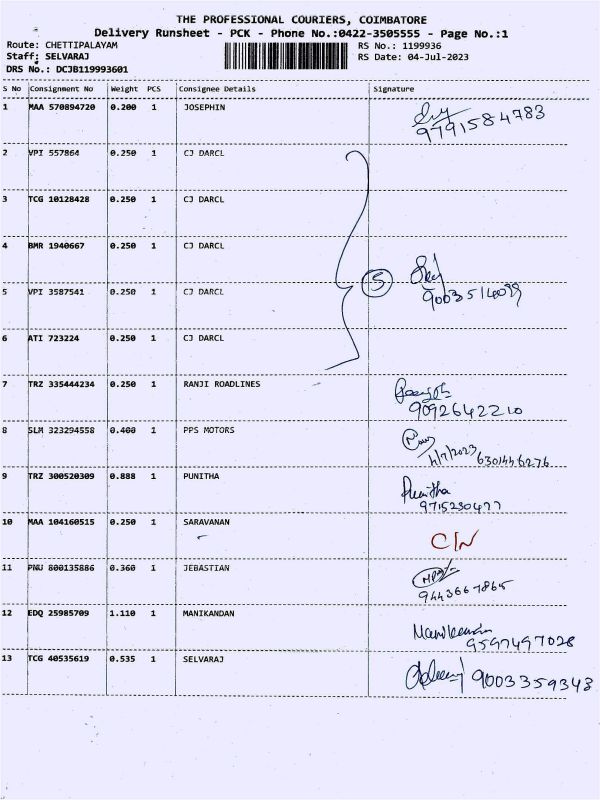 THE PROFESSIONAL COURIERS, COIMBATORE
Delivery Runsheet - PCK - Phone No.:0422-3505555 - Page No.:1
Route: CHETTIPALAYAM RS No.: 1199936
Staff: SELVARAJ RS Date: 04-Jul-2023
DRS No.: DCJB119993601
S No Consignment No Weight PCS Consignee Details Signature
1 MAA 570894720 0.200 1 JOSEPHIN
9791584783
2 VPI 557864 0.250 1 CJ DARCL
3 TCG 10128428 0.250 1 CJ DARCL
4 BMR 1940667 0.250 1 CJ DARCL
5
5 VPI 3587541 0.250 1 CJ DARCL
6 ATI 723224 0.250 1 CJ DARCL
7 TRZ 335444234 0.250 1 RANJI ROADLINES
9092642210
8 SLM 323294558 0.400 1 PPS MOTORS
4/7/2023 6301446276
9 TRZ 300520309 0.888 1 PUNITHA Punitha
9715230477
10 MAA 104160515 0.250 1 SARAVANAN C/N
11 PNU 800135886 0.360 1 JEBASTIAN
9443667865
12 EDQ 25985709 1.110 1 MANIKANDAN
Manikandan
9597497028
13 TCG 40535619 0.535 1 SELVARAJ 9003359343